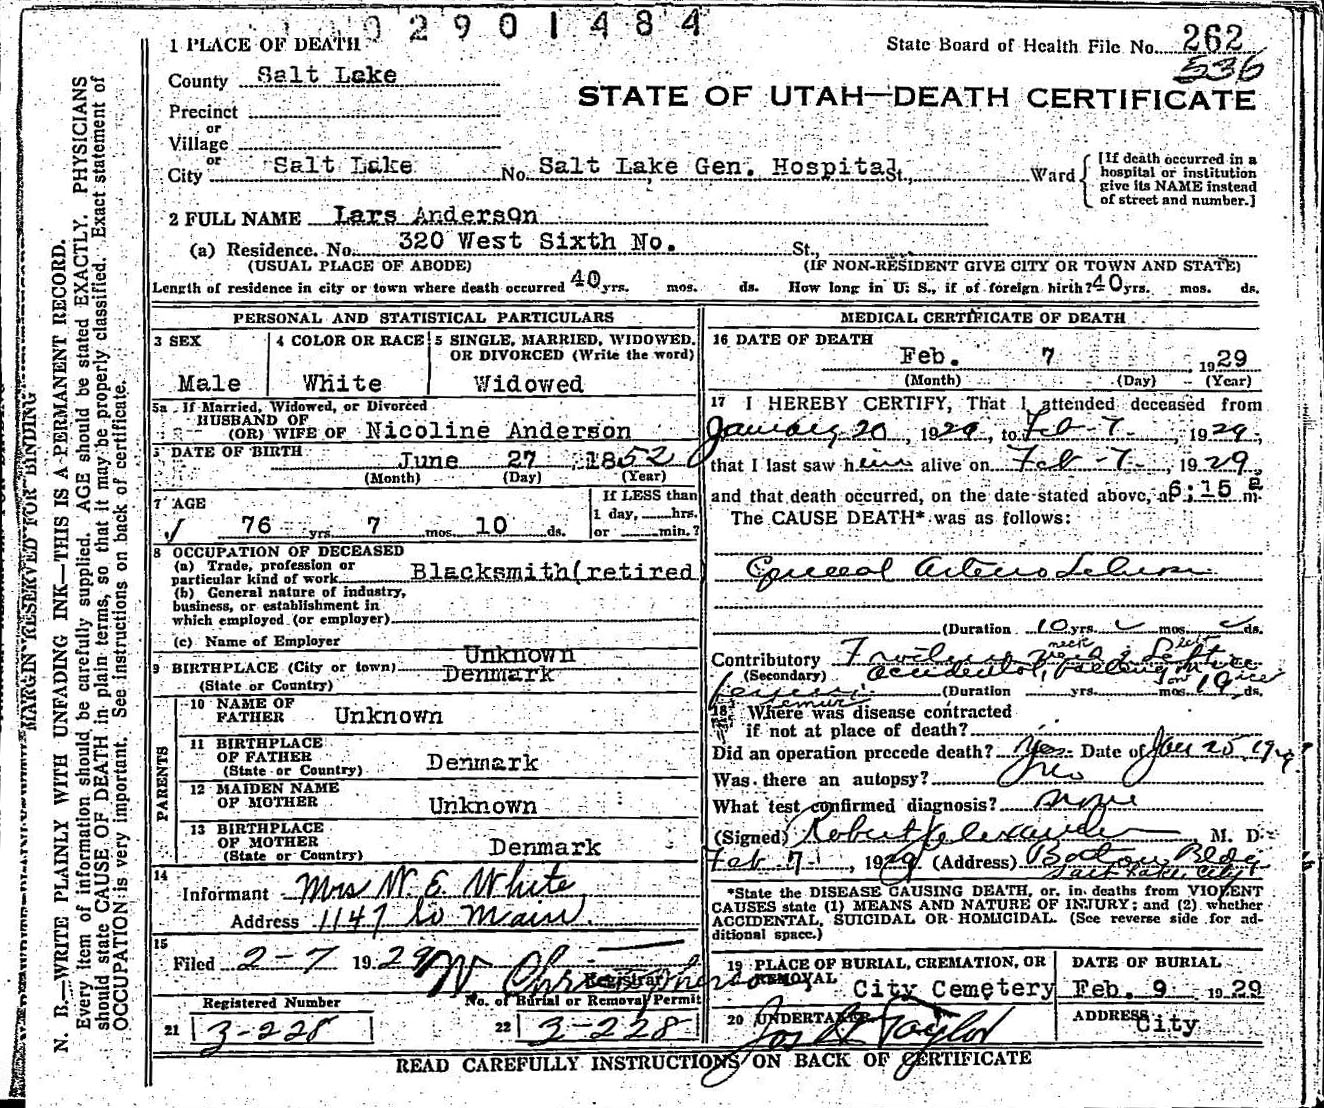 02901484
1 PLACE OF DEATH
State Board of Health File No. 262
536
County Salt Lake
STATE OF UTAH—DEATH CERTIFICATE
Precinct
or
Village
or
City Salt Lake No. Salt Lake Gen. Hospital St., Ward
[If death occurred in a
hospital or institution
give its NAME instead
of street and number.]
2 FULL NAME Lars Anderson
(a) Residence. No. 320 West Sixth No. St.,
(USUAL PLACE OF ABODE) (IF NON-RESIDENT GIVE CITY OR TOWN AND STATE)
Length of residence in city or town where death occurred 40 yrs. mos. ds. How long in U. S., if of foreign birth? 40 yrs. mos. ds.
PERSONAL AND STATISTICAL PARTICULARS
3 SEX
Male
4 COLOR OR RACE
White
5 SINGLE, MARRIED, WIDOWED,
OR DIVORCED (Write the word)
Widowed
5a If Married, Widowed, or Divorced
HUSBAND OF
(OR) WIFE OF Nicoline Anderson
DATE OF BIRTH June 27 1852
(Month) (Day) (Year)
7 AGE
76 yrs. 7 mos. 10 ds.
If LESS than
1 day, hrs.
or min.?
8 OCCUPATION OF DECEASED
(a) Trade, profession or
particular kind of work Blacksmith(retired
(b) General nature of industry,
business, or establishment in
which employed (or employer)
(c) Name of Employer
Unknown
9 BIRTHPLACE (City or town) Denmark
(State or Country)
PARENTS
10 NAME OF
FATHER Unknown
11 BIRTHPLACE
OF FATHER Denmark
(State or Country)
12 MAIDEN NAME
OF MOTHER Unknown
13 BIRTHPLACE
OF MOTHER Denmark
(State or Country)
14
Informant Mrs W. E. White
Address 1147 So Main
15
Filed 2-7 1929
Registrar
Registered Number
21 3-228
No. of Burial or Removal Permit
22 3-228
MEDICAL CERTIFICATE OF DEATH
16 DATE OF DEATH
Feb. 7 1929
(Month) (Day) (Year)
17 I HEREBY CERTIFY, That I attended deceased from
January 20, 1929, to Feb-7-, 1929,
that I last saw him alive on Feb-7-, 1929,
and that death occurred, on the date stated above, at 6:15 P m.
The CAUSE DEATH* was as follows:
General Arterio Sclerosis
(Duration 10 yrs. mos. ds.
Contributory neck
(Secondary) accidental, falling on ice
femur (Duration yrs. mos. 19 ds.
18 Where was disease contracted
if not at place of death?
Did an operation precede death? Yes Date of Jan 25, 1929
Was there an autopsy? no
What test confirmed diagnosis? none
(Signed) Robert Alexander M. D.
Feb 7, 1929 (Address) Boston Bldg.
Salt Lake City
*State the DISEASE CAUSING DEATH, or, in deaths from VIOLENT
CAUSES state (1) MEANS AND NATURE OF INJURY; and (2) whether
ACCIDENTAL, SUICIDAL OR HOMICIDAL. (See reverse side for ad-
ditional space.)
19 PLACE OF BURIAL, CREMATION, OR
REMOVAL City Cemetery
DATE OF BURIAL
Feb. 9 1929
20 UNDERTAKER Jos Taylor
ADDRESS City
READ CAREFULLY INSTRUCTIONS ON BACK OF CERTIFICATE
MARGIN RESERVED FOR BINDING
N. B.—WRITE PLAINLY WITH UNFADING INK—THIS IS A PERMANENT RECORD.
Every item of information should be carefully supplied. AGE should be stated EXACTLY. PHYSICIANS
should state CAUSE OF DEATH in plain terms, so that it may be properly classified. Exact statement of
OCCUPATION is very important. See instructions on back of certificate.